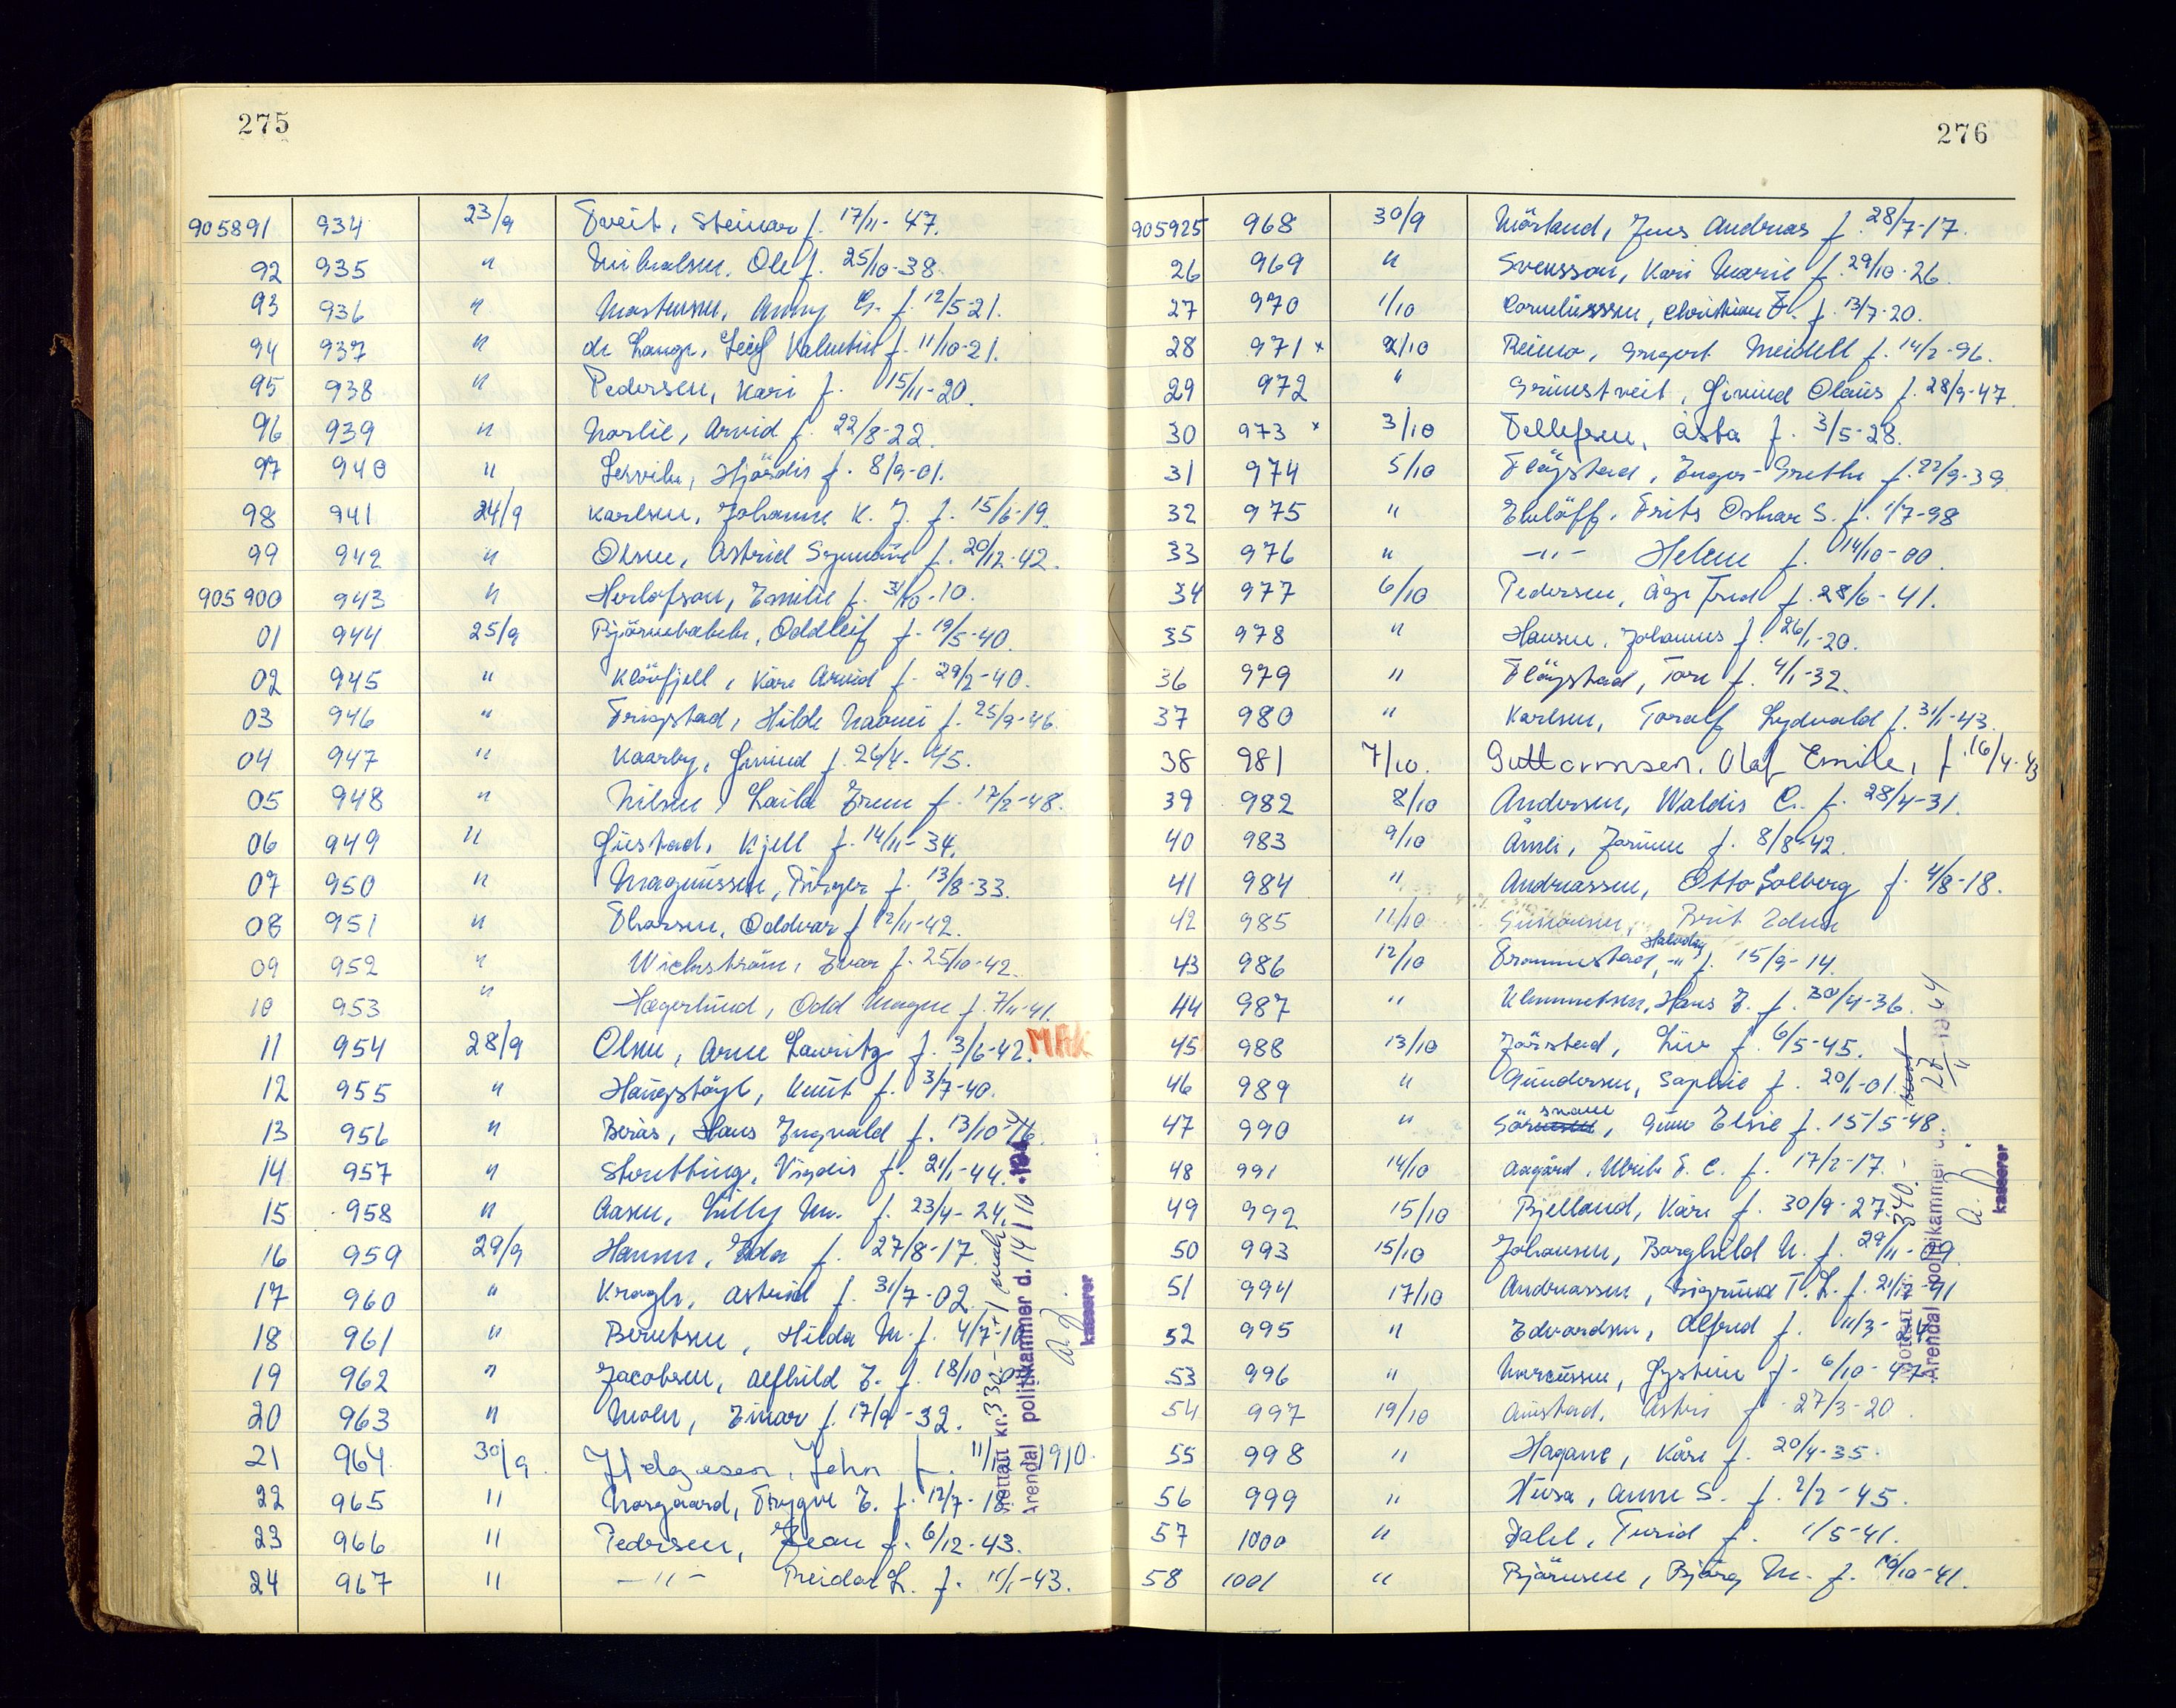 275
905891 934 23/9 Tveit, Steinar f. 17/11-47.
92 935 " Ole f. 25/10-38.
93 936 " Anny G. f. 12/5-21.
94 937 " de Lange, Leif Valentin f. 11/10-21.
95 938 " Pedersen, Kari f. 15/11-20.
96 939 " Norlie, Arvid f. 22/8-22.
97 940 " Hjördis f. 8/9-01.
98 941 24/9 Karlsen, Johanne K. J. f. 15/6-19.
99 942 " Olsen, Astrid Synnöve f. 20/12-42.
905900 943 " Herlofson, Emilie f. 31/10-10.
01 944 25/9 Oddleif f. 19/5-40.
02 945 " Klövfjell, Kåre Arvid f. 29/2-40.
03 946 " Trigstad, Hilde Naomi f. 25/9-46.
04 947 " Kaarby, Gunnvald f. 24/4-45.
05 948 " Nilsen, Laila Irene f. 17/2-48.
06 949 " Gustad, Kjell f. 14/11-34.
07 950 " Magnussen, Birger f. 13/8-33.
08 951 " Oddvar f. 12/11-42.
09 952 " Wichström, Ivar f. 25/10-42.
10 953 " Hagerlund, Odd Magne f. 7/11-41.
11 954 28/9 Olsen, Arne Lauritz f. 3/6-42. MAK
12 955 " Haugstöyl, Knut f. 3/7-40.
13 956 " Berås, Hans Ingvald f. 13/10-16.
14 957 " Stoutting, Vigdis f. 21/1-44.
15 958 " Aasen, Lilly M. f. 23/4-24.
16 959 29/9 Hansen, Ida f. 27/8-17.
17 960 " Kragh, Astrid f. 31/7-02.
18 961 " Berntsen, Hilda M. f. 4/7-10
19 962 " Jacobsen, Alfhild J. f. 18/10
20 963 " Moen, Einar f. 17/9-32.
21 964 30/9 John f. 11/12-1910.
22 965 " Norgaard, Trygve E. f. 12/7-18
23 966 " Pedersen, Jean f. 6/12-43.
24 967 " -"- Reidar L. f. 11/1-43.
Mottatt kr. 330.-
Arendal politikammer d. 14/10
kasserer
276
905925 968 30/9 Mörland, Jens Andreas f. 28/7-17.
26 969 " Svensson, Kari Marie f. 29/10-26.
27 970 1/10 Corneliussen, Christian F. f. 13/7-20.
28 971 x 2/10 Reimo, Meidell f. 14/2-96.
29 972 " Grimstveit, Olaus f. 28/9-47.
30 973 x 3/10 Tellefsen, Åsta f. 3/5-28.
31 974 5/10 Flöystad, Inger-Grethe f. 22/9-39
32 975 " Ehrlöff, Frits Oskar S. f. 1/7-98
33 976 " -"- Helene f. 14/10-00.
34 977 6/10 Pedersen, Åge Fred f. 28/6-41.
35 978 " Hansen, Johannes f. 26/1-20.
36 979 " Flöystad, Tore f. 4/1-32.
37 980 " Karlsen, Toralf Lydvald f. 31/1-43.
38 981 7/10. Guttormsen, Olaf Emile, f. 16/4-43
39 982 8/10 Andersen, Waldis C. f. 28/4-31.
40 983 9/10 Åmli, Jorunn f. 8/8-42.
41 984 " Andreassen, Otto Solberg f. 4/8-18.
42 985 11/10 Simonsen, Brit Edna
43 986 12/10 Trommestad, Halvday -"- f. 15/9-14.
44 987 " Klemmetsen, Hans E. f. 30/4-36.
45 988 13/10 Jörstad, Liv f. 6/5-45.
46 989 " Gundersen, Sophie f. 20/1-01.
47 990 " Gunn Elsie f. 15/5-48.
48 991 14/10 Aagård, Ulrik T. C. f. 17/2-17.
49 992 15/10 Bjelland, Kåre f. 30/9-27.
50 993 15/10 Johansen, Borghild N. f. 29/11-09.
51 994 17/10 Andreassen, Sigrund T. L. f. 21/12-91
52 995 " Edvardsen, Alfred f. 11/3-
53 996 " Marcussen, Öystein f. 6/10-47
54 997 19/10 Austad, Astri f. 27/3-20.
55 998 " Hagane, Kåre f. 20/4-35.
56 999 " Husa, Anne S. f. 2/2-45.
57 1000 " Dahl, Turid f. 1/5-41.
58 1001 " Bjönnsen, Björg M. f. 10/10-41.
Mottatt 340.-
Arendal politikammer d. 28/11 1964
kasserer